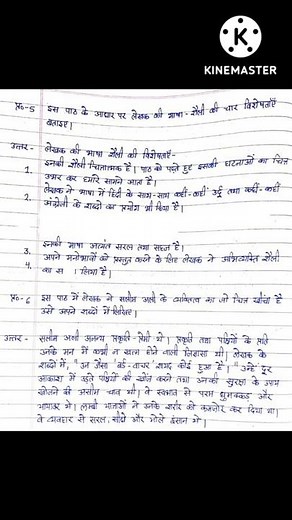 KINEMASTER
प्र०-5 इस पाठ के आधार पर लेखक की भाषा-शैली की चार विशेषताएँ
बताइए।
उत्तर- लेखक की भाषा शैली की विशेषताएँ-
1. इनकी शैली चित्रात्मक है। पाठ को पढ़ते हुए इसकी घटनाओं का चित्र
उभर कर हमारे सामने आता है।
2. लेखक ने भाषा में हिंदी के साथ-साथ कहीं-कहीं उर्दू तथा कहीं-कहीं
अंग्रेजी के शब्दों का प्रयोग भी किया है।
3. इनकी भाषा अत्यंत सरल तथा सहज है।
4. अपने मनोभावों को प्रस्तुत करने के लिए लेखक ने अभिव्यक्ति शैली
का स लिया है।
प्र०-6 इस पाठ में लेखक ने सलीम अली के व्यक्तित्व का जो चित्र खींचा है
उसे अपने शब्दों में लिखिए।
उत्तर- सलीम अली अनन्य प्रकृति-प्रेमी थे। प्रकृति तथा पक्षियों के प्रति
उनके मन में कभी न खत्म होने वाली जिज्ञासा थी। लेखक के
शब्दों में, "उन जैसा 'बर्ड-वाचर' शायद कोई हुआ है।" उन्हें दूर
आकाश में उड़ते पक्षियों की खोज करने तथा उनकी सुरक्षा के उपाय
खोजने की असीम चाह थी। वे स्वभाव से परम घुमक्कड़ और
यायावर थे। लंबी यात्राओं ने उनके शरीर को कमज़ोर कर दिया था।
वे व्यवहार से सरल, सीधे और भोले इंसान थे।